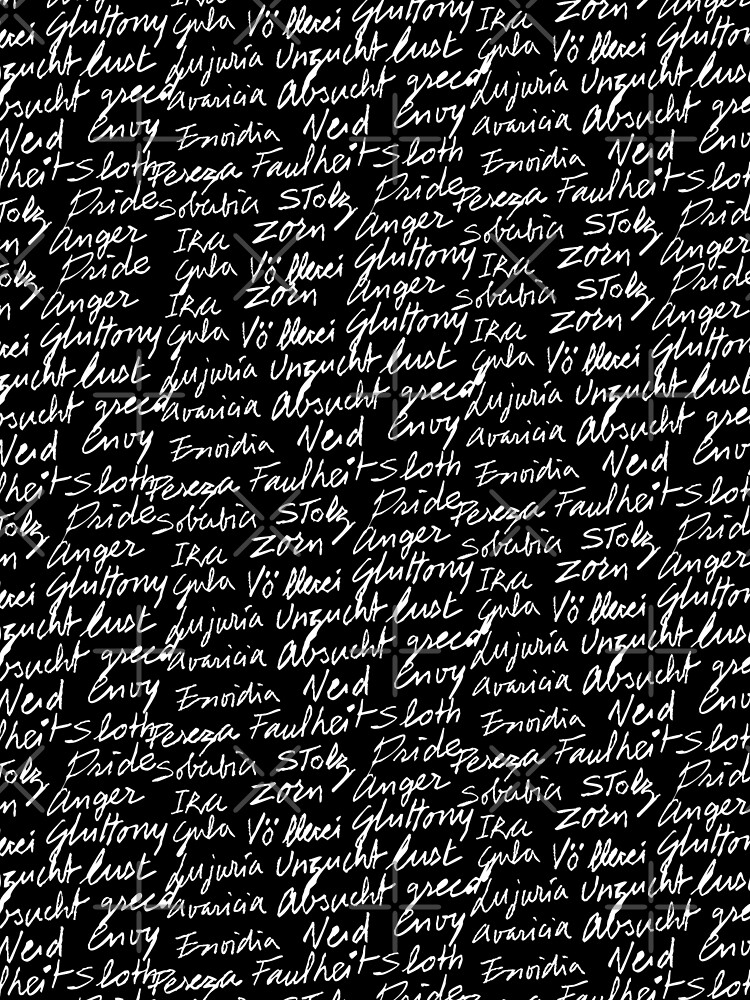 Gluttony Gula Völlerei Gluttony Ira Zorn anger
Unzucht lust Lujuría Unzucht lust Gula Völlerei Gluttony
Absucht greed Avaricia Absucht greed Lujuría Unzucht lust
Neid Envy Envidia Neid Envy Avaricia Absucht greed
Faulheit Sloth Pereza Faulheit Sloth Envidia Neid Envy
Stolz Pride Sobabia STolz Pride Pereza Faulheit Sloth
anger IRa Zorn anger Sobabia STolz Pride
Stolz Pride Gula Völlerei Gluttony IRa Zorn anger
anger IRa Zorn anger Sobabia STolz Pride
Gluttony Gula Völlerei Gluttony IRa Zorn anger
Unzucht lust Lujuría Unzucht lust Gula Völlerei Gluttony
Absucht greed Avaricia Absucht greed Lujuría Unzucht lust
Neid Envy Envidia Neid Envy Avaricia Absucht greed
Faulheit Sloth Pereza Faulheit Sloth Envidia Neid Envy
Stolz Pride Sobabia STolz Pride Pereza Faulheit Sloth
anger IRa Zorn anger Sobabia STolz Pride
Gluttony Gula Völlerei Gluttony IRa Zorn anger
Unzucht lust Lujuría Unzucht lust Gula Völlerei Gluttony
Absucht greed Avaricia Absucht greed Lujuría Unzucht lust
Neid Envy Envidia Neid Envy Avaricia Absucht greed
Faulheit Sloth Pereza Faulheit Sloth Envidia Neid Envy
Stolz Pride Sobabia STolz Pride Pereza Faulheit Sloth
anger IRa Zorn anger Sobabia STolz Pride
Gluttony Gula Völlerei Gluttony IRa Zorn anger
Unzucht lust Lujuría Unzucht lust Gula Völlerei Gluttony
Absucht greed Avaricia Absucht greed Lujuría Unzucht lust
Neid Envy Envidia Neid Envy Avaricia Absucht greed
Faulheit Sloth Pereza Faulheit Sloth Envidia Neid Envy